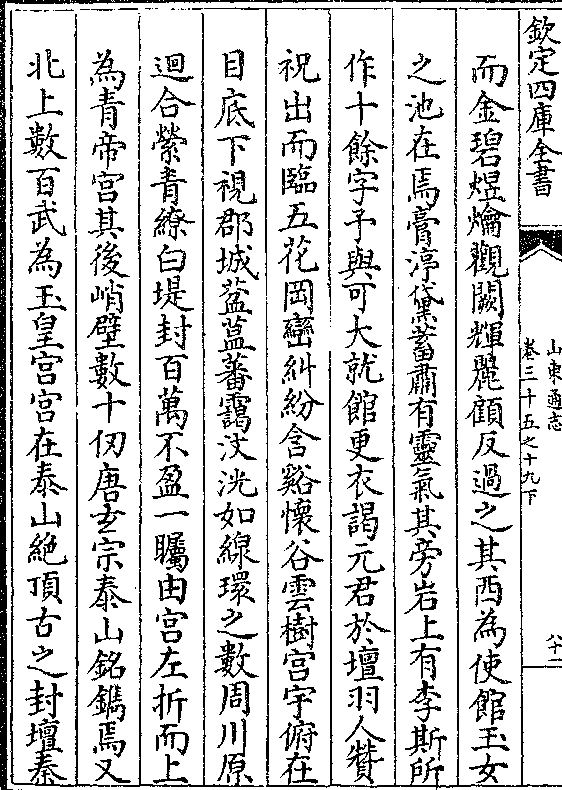 欽定四庫全書
山東通志
卷三十五之十九下
八十二
而金碧煜爚觀闕輝麗顧反過之其西為使館玉女
之池在焉膏渟黛蓄肅有靈氣其旁岩上有李斯所
作十餘字予與可大就館更衣謁元君於壇羽人贊
祝出而臨五花岡巒糾紛含谿懷谷雲樹宫宇俯在
目底下視郡城葢蒀蕃靄汶洸如線環之數周川原
迴合縈青繚白堤封百萬不盈一矚由宫左折而上
為青帝宫其後峭壁數十仞唐玄宗泰山銘鐫焉又
北上數百武為玉皇宫宫在泰山絶頂古之封壇秦